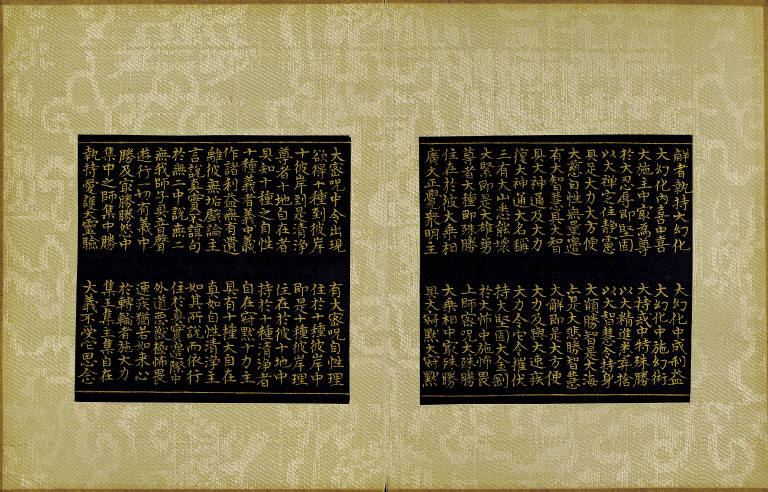 解者執持大幻化　大幻化中成利益
大幻化內喜中喜　大幻化中施幻術
大施主中最為尊　大持戒中持殊勝
於大忍辱即堅固　以大精進悉棄捨
以大禪定住靜慮　以大智慧令持身
具足大力大方便　大願勝智是大海
大慈自性無量邊　亦是大悲勝智慧
有大智慧具大智　大解即是大方便
具大神通及大力　大力及與大速疾
復大神通大名稱　大力令他令摧伏
三有大山悉能壞　持大堅固大金剛
大緊即是大雄勇　於大怖中施怖畏
尊者大種即殊勝　上師密呪大殊勝
住在於彼大乘相　大乘相中最殊勝
廣大正覺眾明主　具大寂默大寂默
大密呪中令出現　有大密呪自性理
欲得十種到彼岸　住於十種彼岸中
十彼岸到是清淨　即是十種彼岸理
尊者十地自在者　住在於彼十地中
具知十種之自性　持於十種清淨者
十種義者義中義　自在寂默十力主
作諸利益無有遺　具有十種大自在
離彼無垢戲論主　真如自性清淨主
言說真實不諂句　如其所說而依行
於無二中說無二　住於真實邊際中
無我師子具音聲　外道惡獸極怖畏
遊行一切有義中　速疾猶若如來心
勝及最勝勝怨中　於轉輪者施大力
集中之師集中勝　集王集主集自在
執持愛護大靈驗　大義不受他恩念